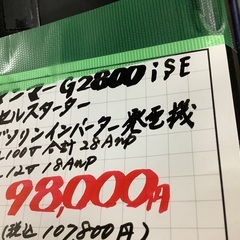 ンマーG2800iSE
セルスターター
ガソリンインバーター発電機
100V 合計28Amp
12V 18Amp
98,000円
(税込 107800円)